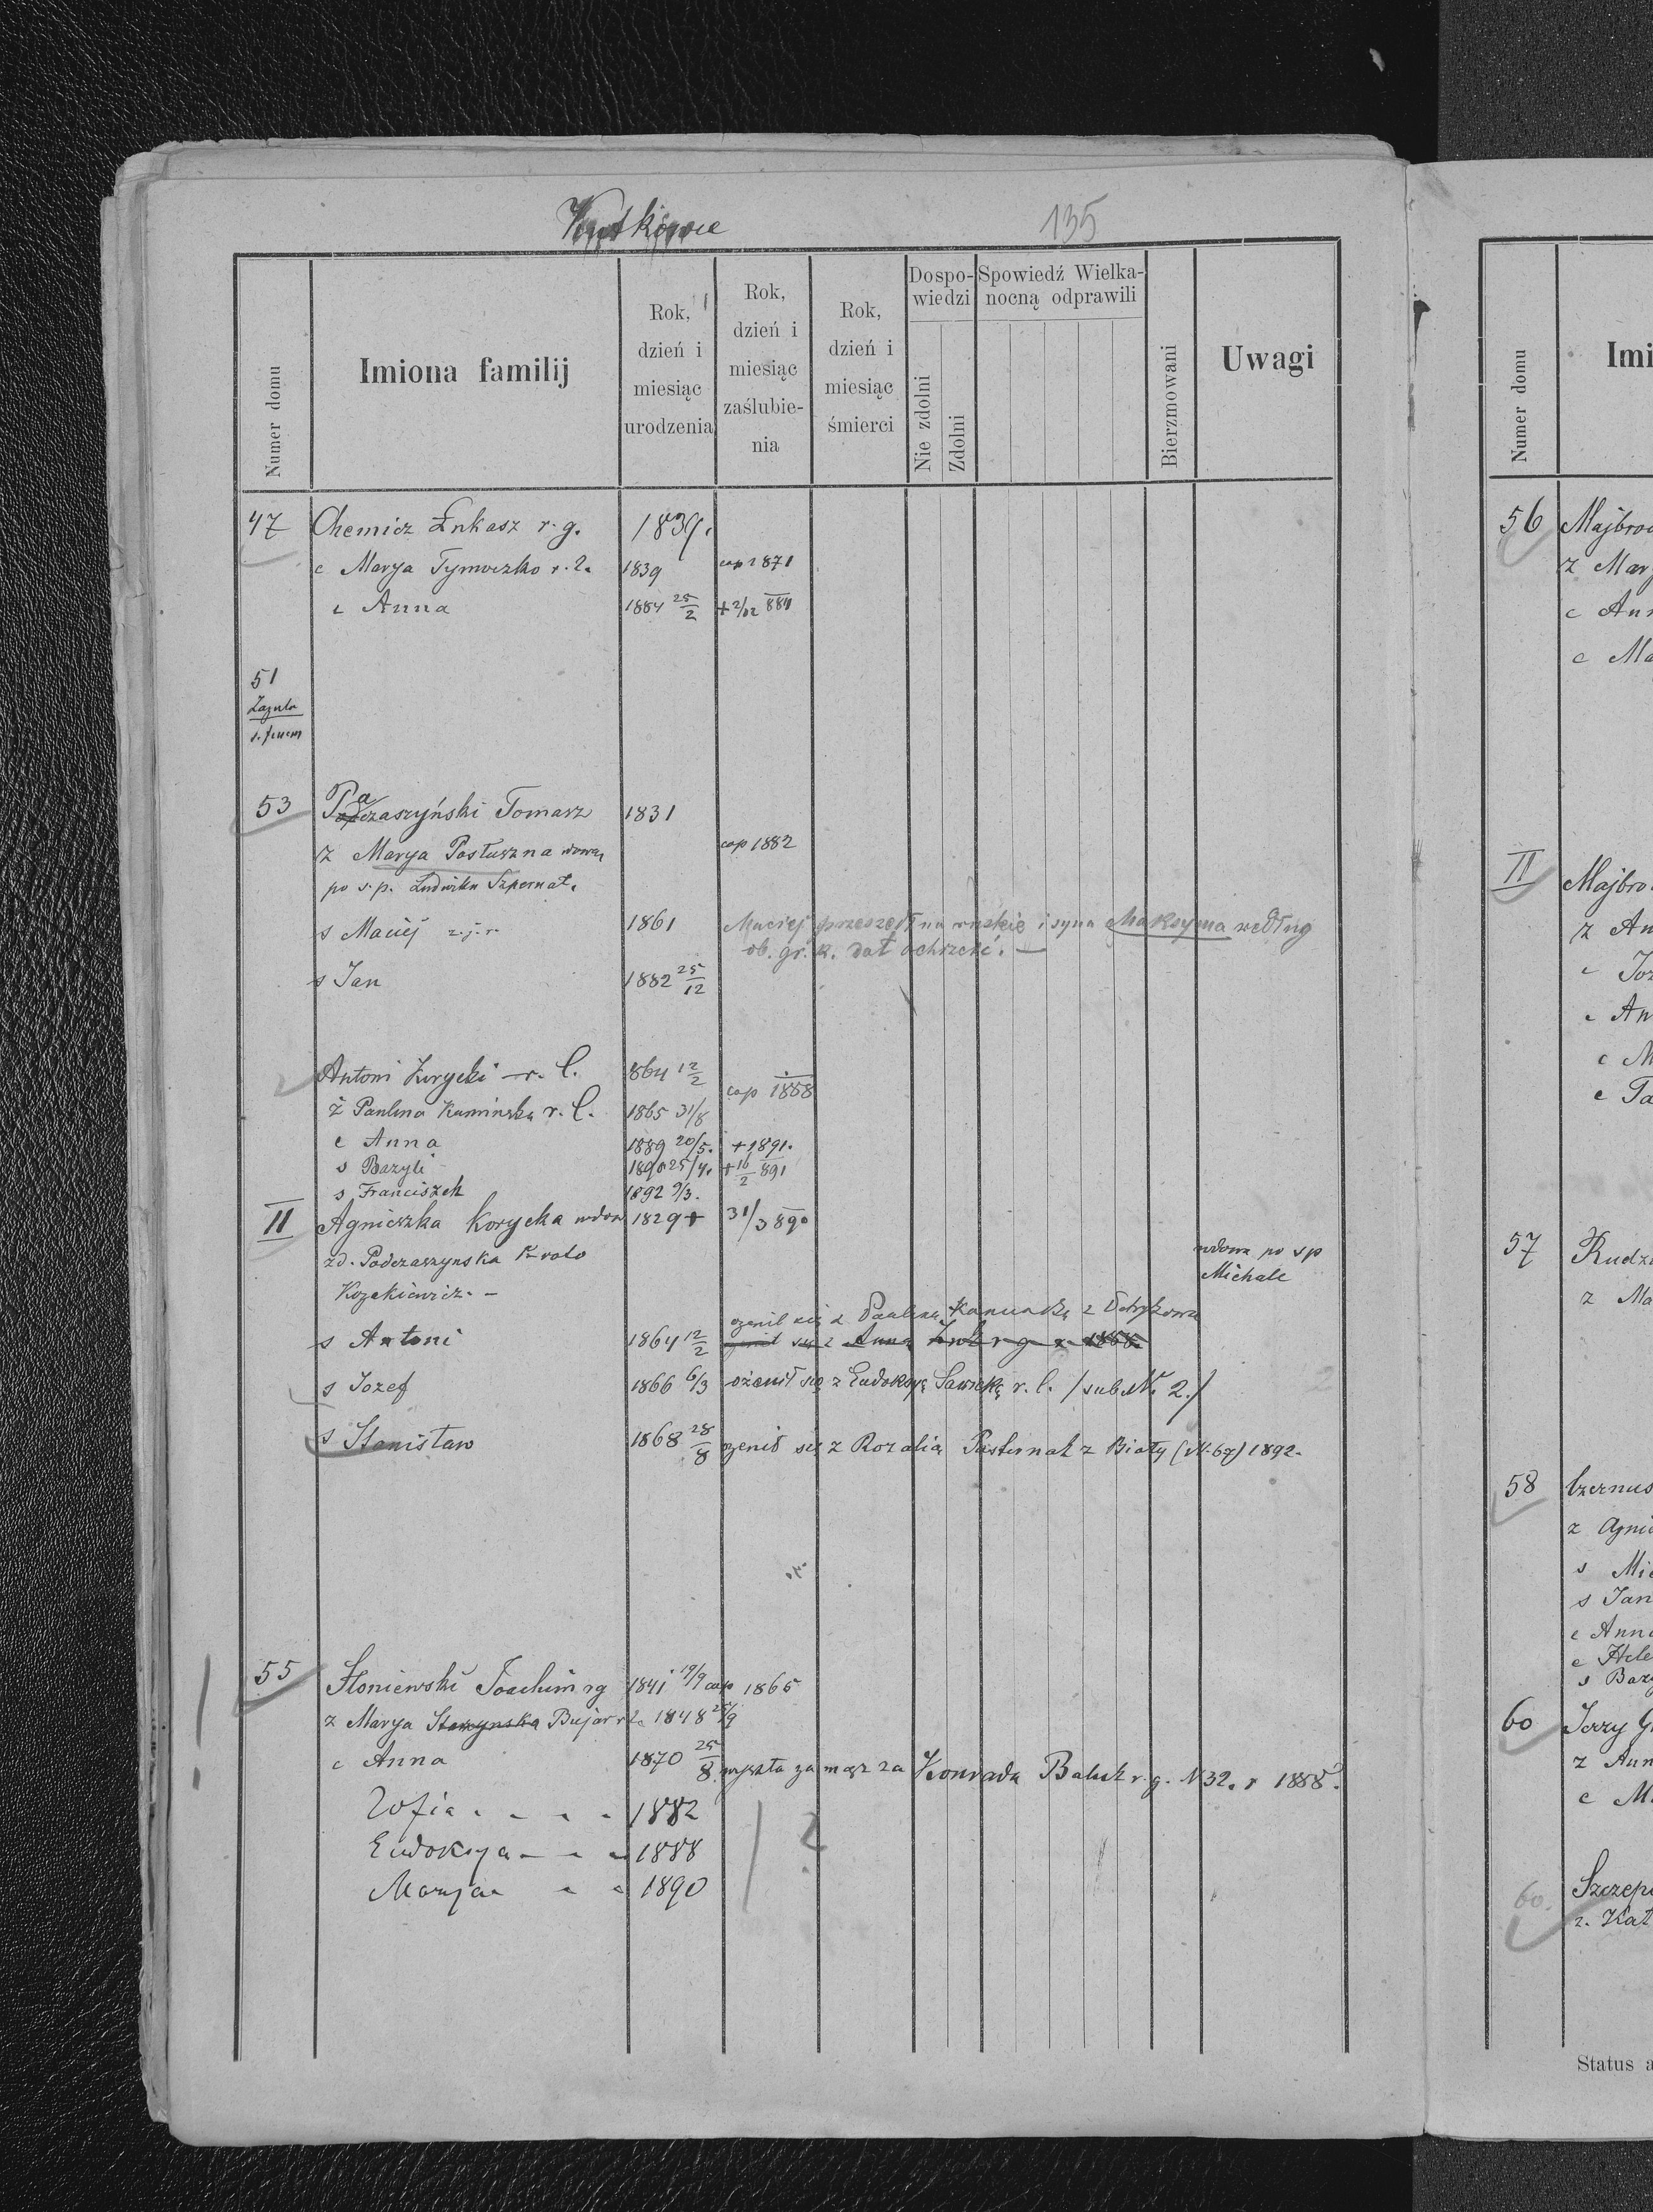 135
Numer domu
Imiona familij
Rok, dzień i miesiąc urodzenia
Rok, dzień i miesiąc zaślubie-nia
Rok, dzień i miesiąc śmierci
Dospo-wiedzi
Nie zdolni
Zdolni
Spowiedź Wielka-nocną odprawili
Bierzmowani
Uwagi
47 Chemicz Łukasz r. g. 1839.
c Marya Tymoczko r. 2. 1839 cop 1871
c Anna 1884 25/2 + 2/12 884
51
Zagula
53 Podczaszyński Tomasz 1831
z Marya Postuszna wdowa cop 1882
po s. p. Ludwiku
s Maciej 1861 Maciej przeszedł na ruskie i syna Maksyma według
ob. gr. k. dał ochrzcić. —
s Jan 1882 25/12
Antoni r. l. 864 12/2 cop 1888
ż Paulina Kaminska r. l. 1865 31/8
c Anna 1889 20/5. + 1891.
s Bazyli 1890 25/4. + 16/2 891
s Franciszek 1892 9/3.
II Agnieszka Korycka wdow 1829 + 31/3 890
zd. Podczaszynska
wdowa po sp
Michale
s Antoni 1864 12/2 ozenil się z Pauliną
s Jozef 1866 6/3 ożenił się z Eudoksyą Sawicką r. l. / sub N 2./
s Stanisław 1868 28/8 ozenił się z Rozalią Pasternak z Biały (N. 67) 1892.
55 Słoniewski Joachim rg 1841 19/9 cop 1865
z Marya Bujar r l. 1848 25/9
c Anna 1870 25/8 wyszła za mąz za Konrada Baluk r. g. N 32. r 1888.
Zofia 1882
Eudoksya 1888
Marya 1890
2
Numer domu
Imi
56
z Mar
c Ann
c Ma
II Majbro
z An
c Joz
c An
c M
c Ta
57 Rudz
z Ma
58 Czernus
z Agni
s Mi
s Jan
c Ann
c Hele
s Baz
60 Jerzy
z Ann
c M
60. Szczep
z. Kat
Status a